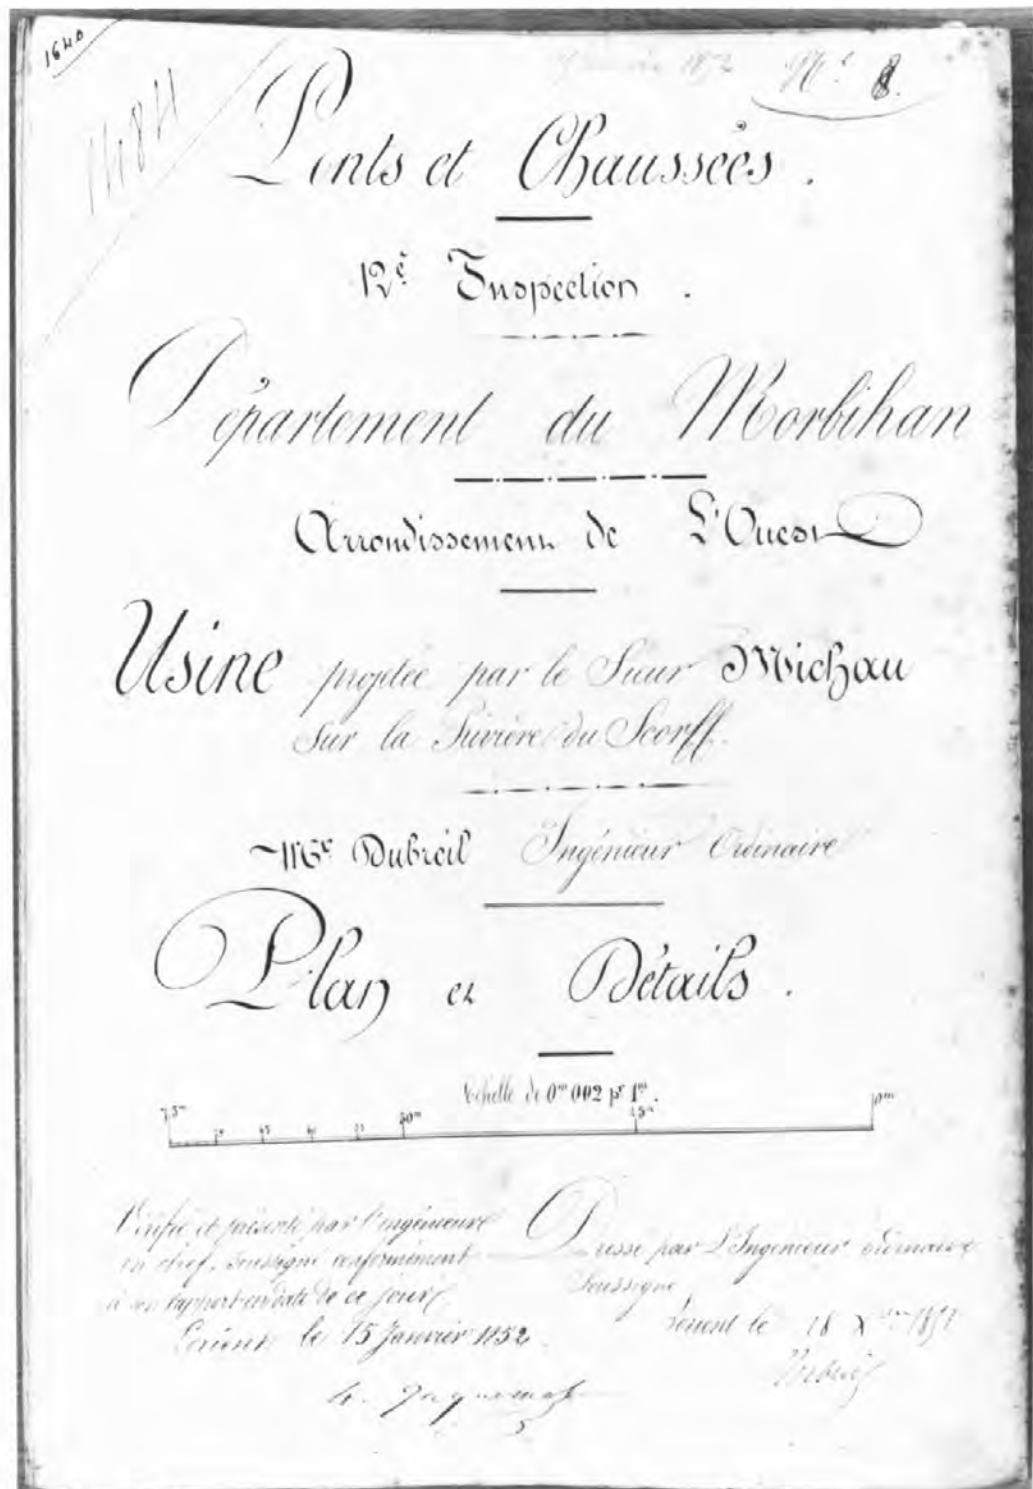 1640
1484
Janvier 1852 N° 8.
Ponts et Chaussées.
12e. Inspection.
Département du Morbihan
Arrondissement de L'Ouest
Usine projetée par le Sieur Michau
Sur la Rivière du Scorff.
Mr. Dubreil Ingénieur Ordinaire
Plan et Détails.
Echelle de 0m 002 pr 1m.
75m 70 65 60 55 50m 25m 0m
Vérifié et présenté par l'ingénieur
en chef, soussigné conformément
à son rapport en date de ce jour
Lorient le 15 Janvier 1852.
Dressé par L'Ingénieur ordinaire
Soussigné
Lorient le 18 Xbre 1851
Dubreil